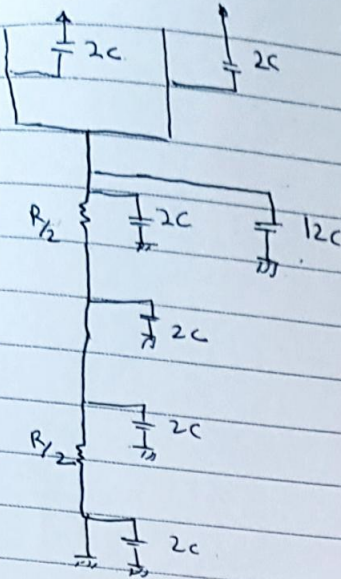 2C 2C
R/2 2C 12C
2C
2C
R/2
2C